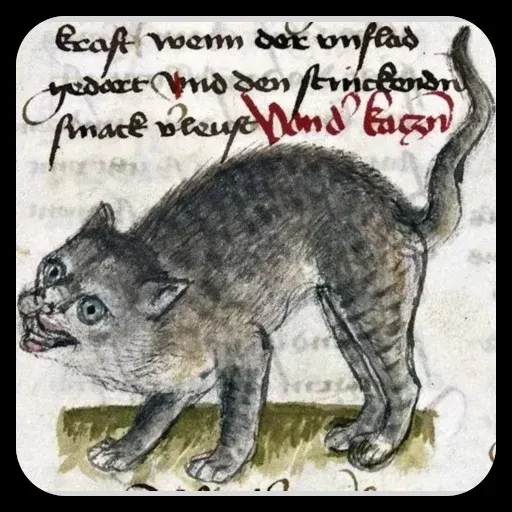 kraft wenn der vnflad
gedort Vnd den stinckendn
smack v'leust Vond' kaczn